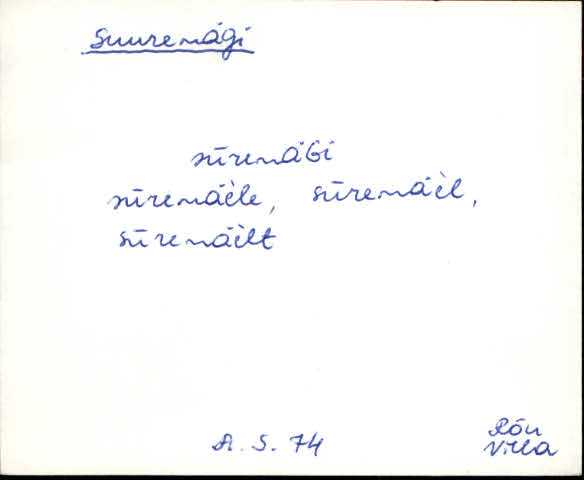 Suurenägi
sūrenäGi
sūrenäèle, sūrenäèl,
sūrenäèlt
A. S. 74
Rõu
Villa